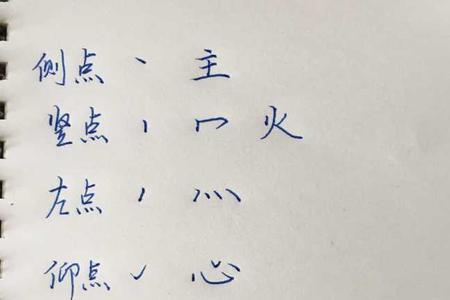 侧点 丶 主
竖点 丨 冖 火
左点 灬
仰点 心